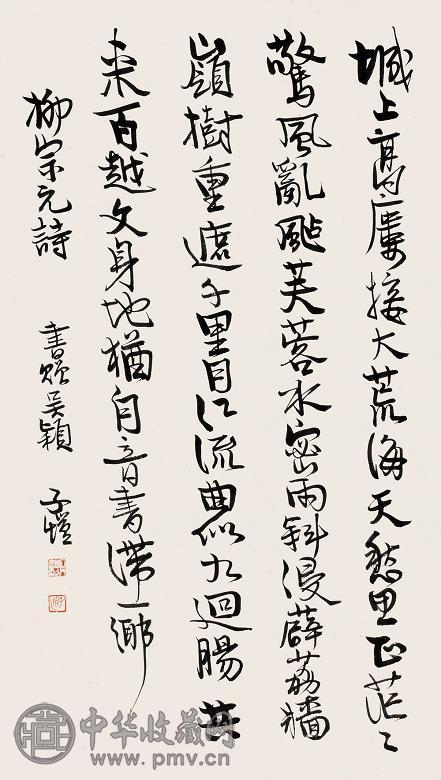 城上高樓接大荒海天愁思正茫〻
驚風亂颭芙蓉水密雨斜侵薜荔墻
嶺樹重遮千里目江流曲似九迴腸共
來百越文身地猶自音書滯一鄉
柳宗元詩 書贈吳穎 子愷
中华收藏网
www.pmv.cn